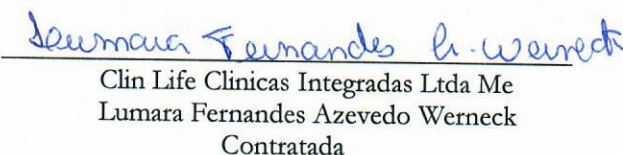 Lumara Fernandes A. Werneck
Clin Life Clinicas Integradas Ltda Me
Lumara Fernandes Azevedo Werneck
Contratada